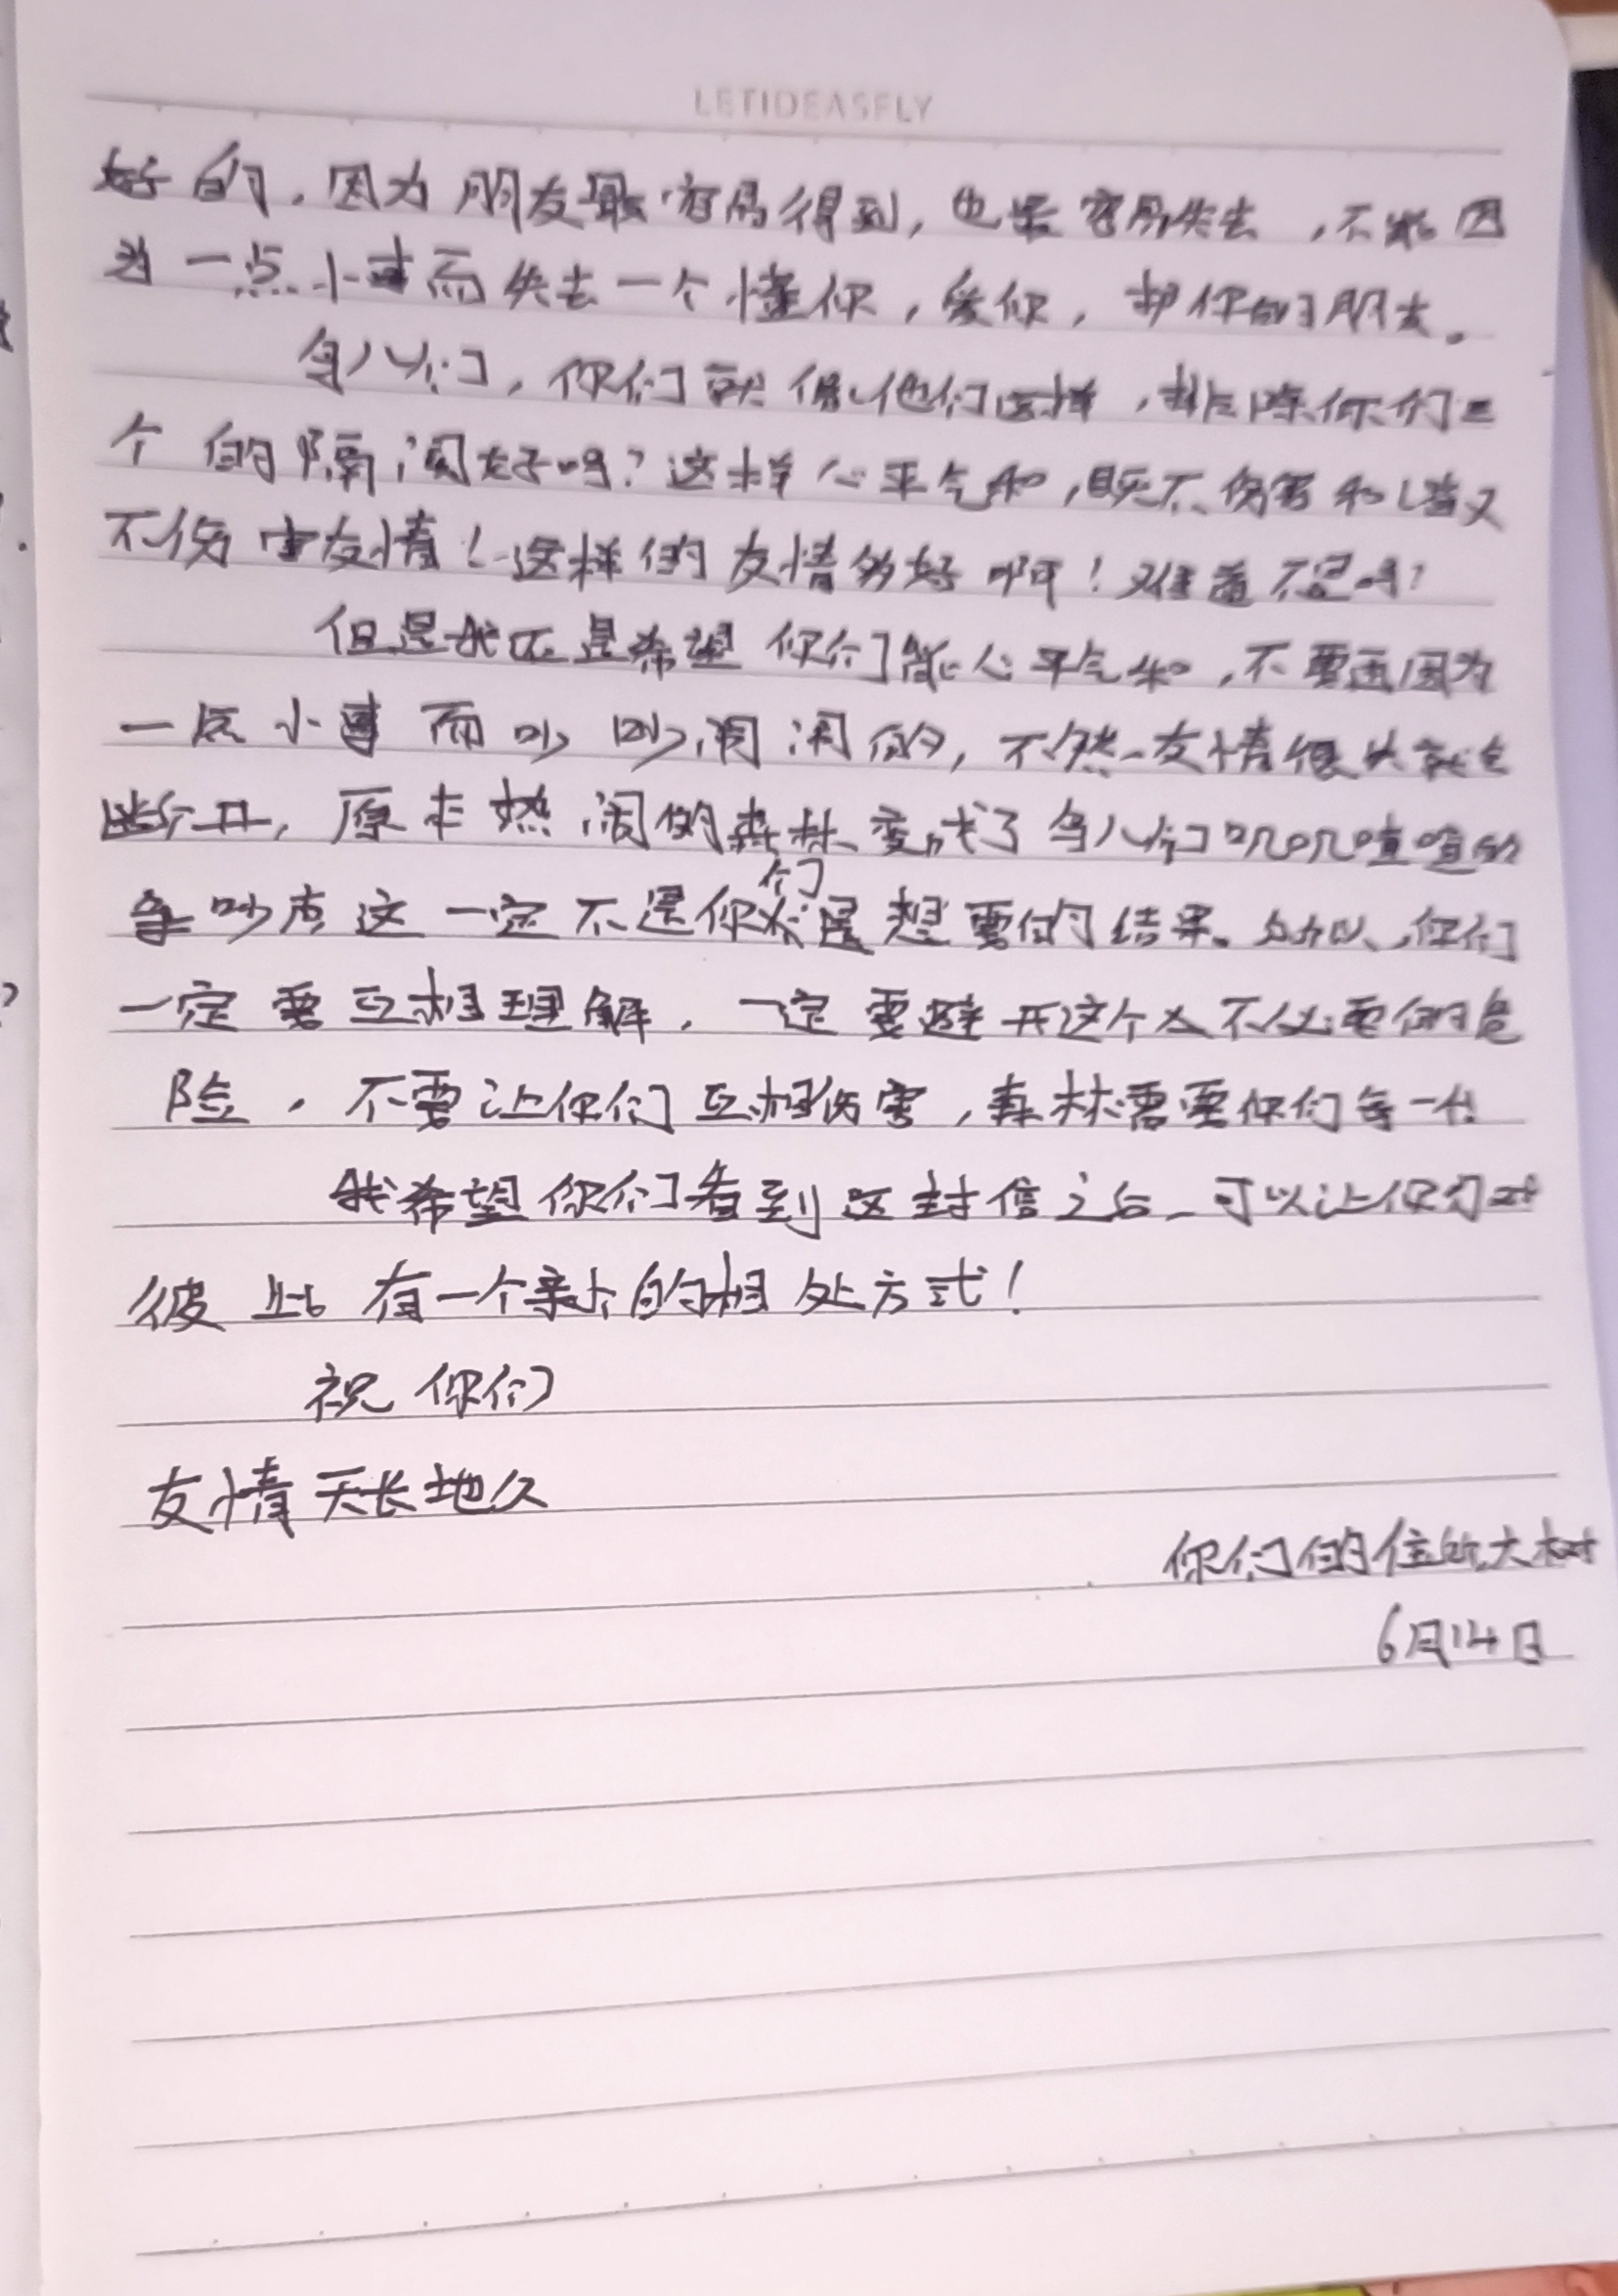 LETIDEASFLY
好的，因为朋友最容易得到，也最容易失去，不能因
为一点小事而失去一个懂你，爱你，护你的朋友。
鸟儿们，你们就像他们这样，排除你们三
个的隔阂好吗？这样心平气和，既不伤害和谐又
不伤害友情！这样的友情多好啊！难道不是吗？
但是我还是希望你们能心平气和，不要再因为
一点小事而吵吵闹闹的，不然友情很快就会
断开，原本热闹的森林变成了鸟儿们叽叽喳喳的
争吵声这一定不是你们想要的结果。所以，你们
一定要互相理解，一定要避开这个不必要的危
险，不要让你们互相伤害，森林需要你们每一个！
我希望你们看到这封信之后，可以让你们对
彼此有一个新的相处方式！
祝你们
友情天长地久
你们的住所大树
6月14日